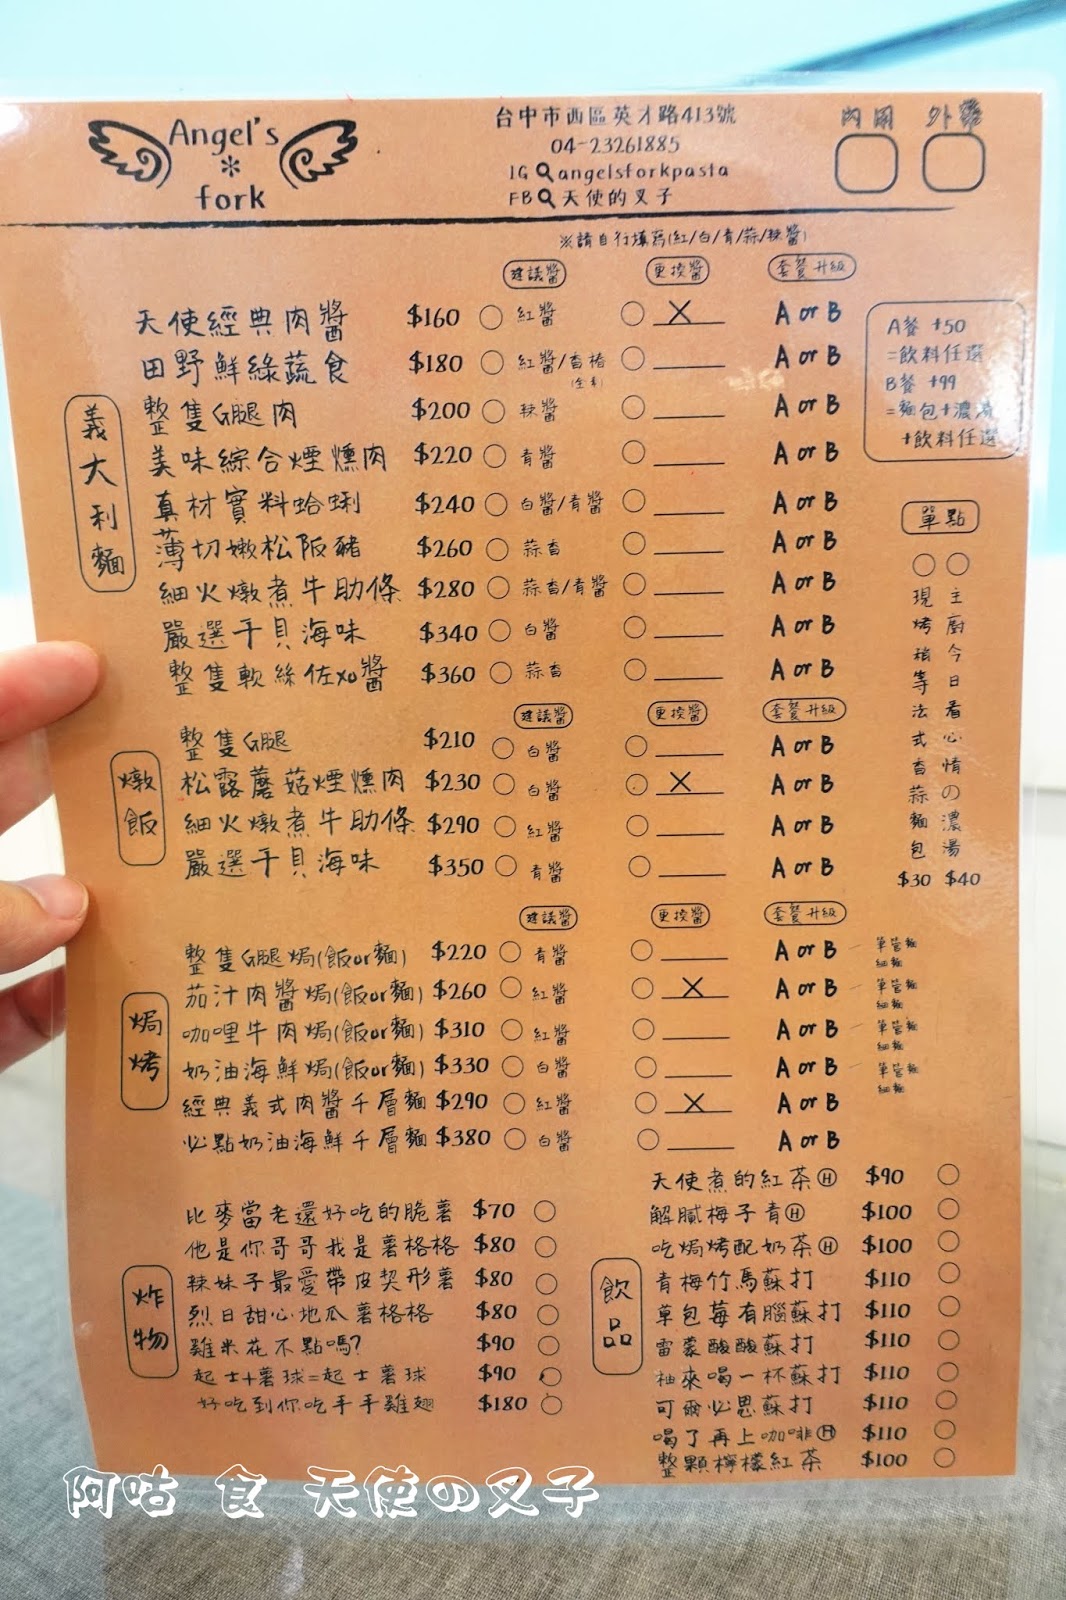 Angel's
*
fork
台中市西區英才路413號
04-23261885
IG angelsforkpasta
FB 天使的叉子
內用 外帶
※請自行填寫(紅/白/青/蒜/辣醬)
建議醬 更換醬 套餐升級
義大利麵
天使經典肉醬 $160 紅醬 X A or B
田野鮮綠蔬食 $180 紅醬/香椿 A or B
(全素)
整隻G腿肉 $200 辣醬 A or B
美味綜合煙燻肉 $220 青醬 A or B
真材實料蛤蜊 $240 白醬/青醬 A or B
薄切嫩松阪豬 $260 蒜香 A or B
細火燉煮牛肋條 $280 蒜香/青醬 A or B
嚴選干貝海味 $340 白醬 A or B
整隻軟絲佐XO醬 $360 蒜香 A or B
A餐 +50
=飲料任選
B餐 +99
=麵包+濃湯
+飲料任選
單點
主廚今日看心情の濃湯
現烤稍等法式香蒜麵包
$30 $40
建議醬 更換醬 套餐升級
燉飯
整隻G腿 $210 白醬 A or B
松露蘑菇煙燻肉 $230 白醬 X A or B
細火燉煮牛肋條 $290 紅醬 A or B
嚴選干貝海味 $350 青醬 A or B
建議醬 更換醬 套餐升級
焗烤
整隻G腿焗(飯or麵) $220 青醬 A or B 筆管麵
細麵
茄汁肉醬焗(飯or麵) $260 紅醬 X A or B 筆管麵
細麵
咖哩牛肉焗(飯or麵) $310 紅醬 A or B 筆管麵
細麵
奶油海鮮焗(飯or麵) $330 白醬 A or B 筆管麵
細麵
經典義式肉醬千層麵 $290 紅醬 X A or B
必點奶油海鮮千層麵 $380 白醬 A or B
炸物
比麥當老還好吃的脆薯 $70
他是你哥哥我是薯格格 $80
辣妹子最愛帶皮契形薯 $80
烈日甜心地瓜薯格格 $80
雞米花不點嗎? $90
起士+薯球=起士薯球 $90
好吃到你吃手手雞翅 $180
飲品
天使煮的紅茶Ⓗ $90
解膩梅子青Ⓗ $100
吃焗烤配奶茶Ⓗ $100
青梅竹馬蘇打 $110
草包莓有腦蘇打 $110
雷蒙酸酸蘇打 $110
柚來喝一杯蘇打 $110
可爾必思蘇打 $110
喝了再上咖啡Ⓗ $110
整顆檸檬紅茶 $100
阿咕 食 天使の叉子